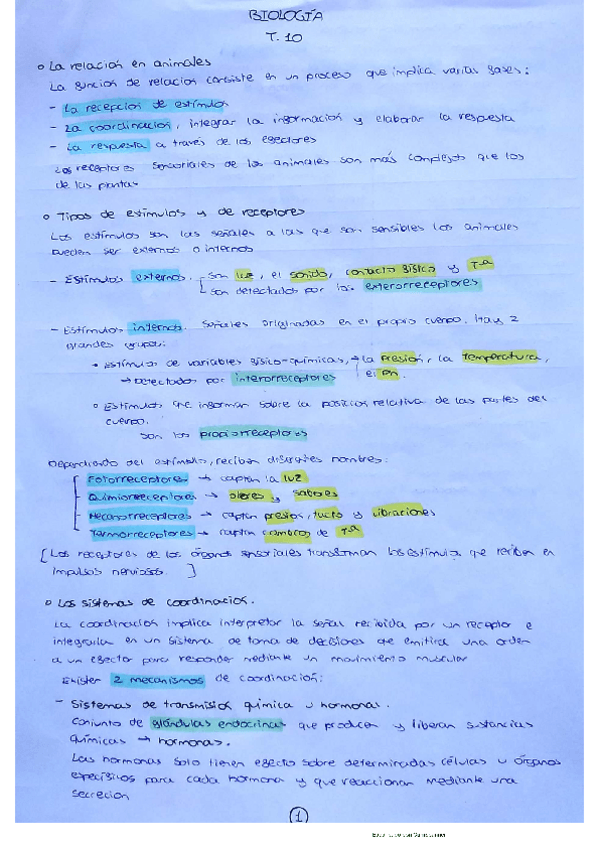 BIOLOGÍA
T. 10
La relación en animales
La función de relación consiste en un proceso que implica varias fases:
- La recepción de estímulos
- La coordinación, integrar la información y elaborar la respuesta
- La respuesta a través de los efectores
Los receptores sensoriales de los animales son más complejos que los
de las plantas
Tipos de estímulos y de receptores
Los estímulos son las señales a las que son sensibles los animales
pueden ser externos o internos
- Estímulos externos. son luz, el sonido, contacto físico y Tª
son detectados por los exterorreceptores
- Estímulos internos. Señales originadas en el propio cuerpo. Hay 2
grandes grupos:
• Estímulos de variables físico-químicas, → la presión, la temperatura,
→ Detectados por interorreceptores el PH.
Estímulos que informan sobre la posición relativa de las partes del
cuerpo.
son los propiorreceptores
Dependiendo del estímulo, reciben diferentes nombres:
Fotorreceptores → captan la luz
Quimiorreceptores → olores y sabores
Mecanorreceptores → captan presión, tacto y vibraciones
Termorreceptores → captan cambios de Tª
[Los receptores de los órganos sensoriales transforman los estímulos que reciben en
impulsos nerviosos. ]
Los sistemas de coordinación.
La coordinación implica interpretar la señal recibida por un receptor e
integrarla en un sistema de toma de decisiones que emitirá una orden
a un efector para responder mediante un movimiento muscular
Existen 2 mecanismos de coordinación:
- Sistemas de transmisión química u hormonas.
Conjunto de glándulas endocrinas que producen y liberan sustancias
químicas → hormonas.
Las hormonas solo tienen efecto sobre determinadas células u órganos
específicos para cada hormona y que reaccionan mediante una
secreción
1